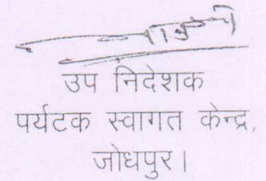 उप निदेशक
पर्यटक स्वागत केन्द्र,
जोधपुर।